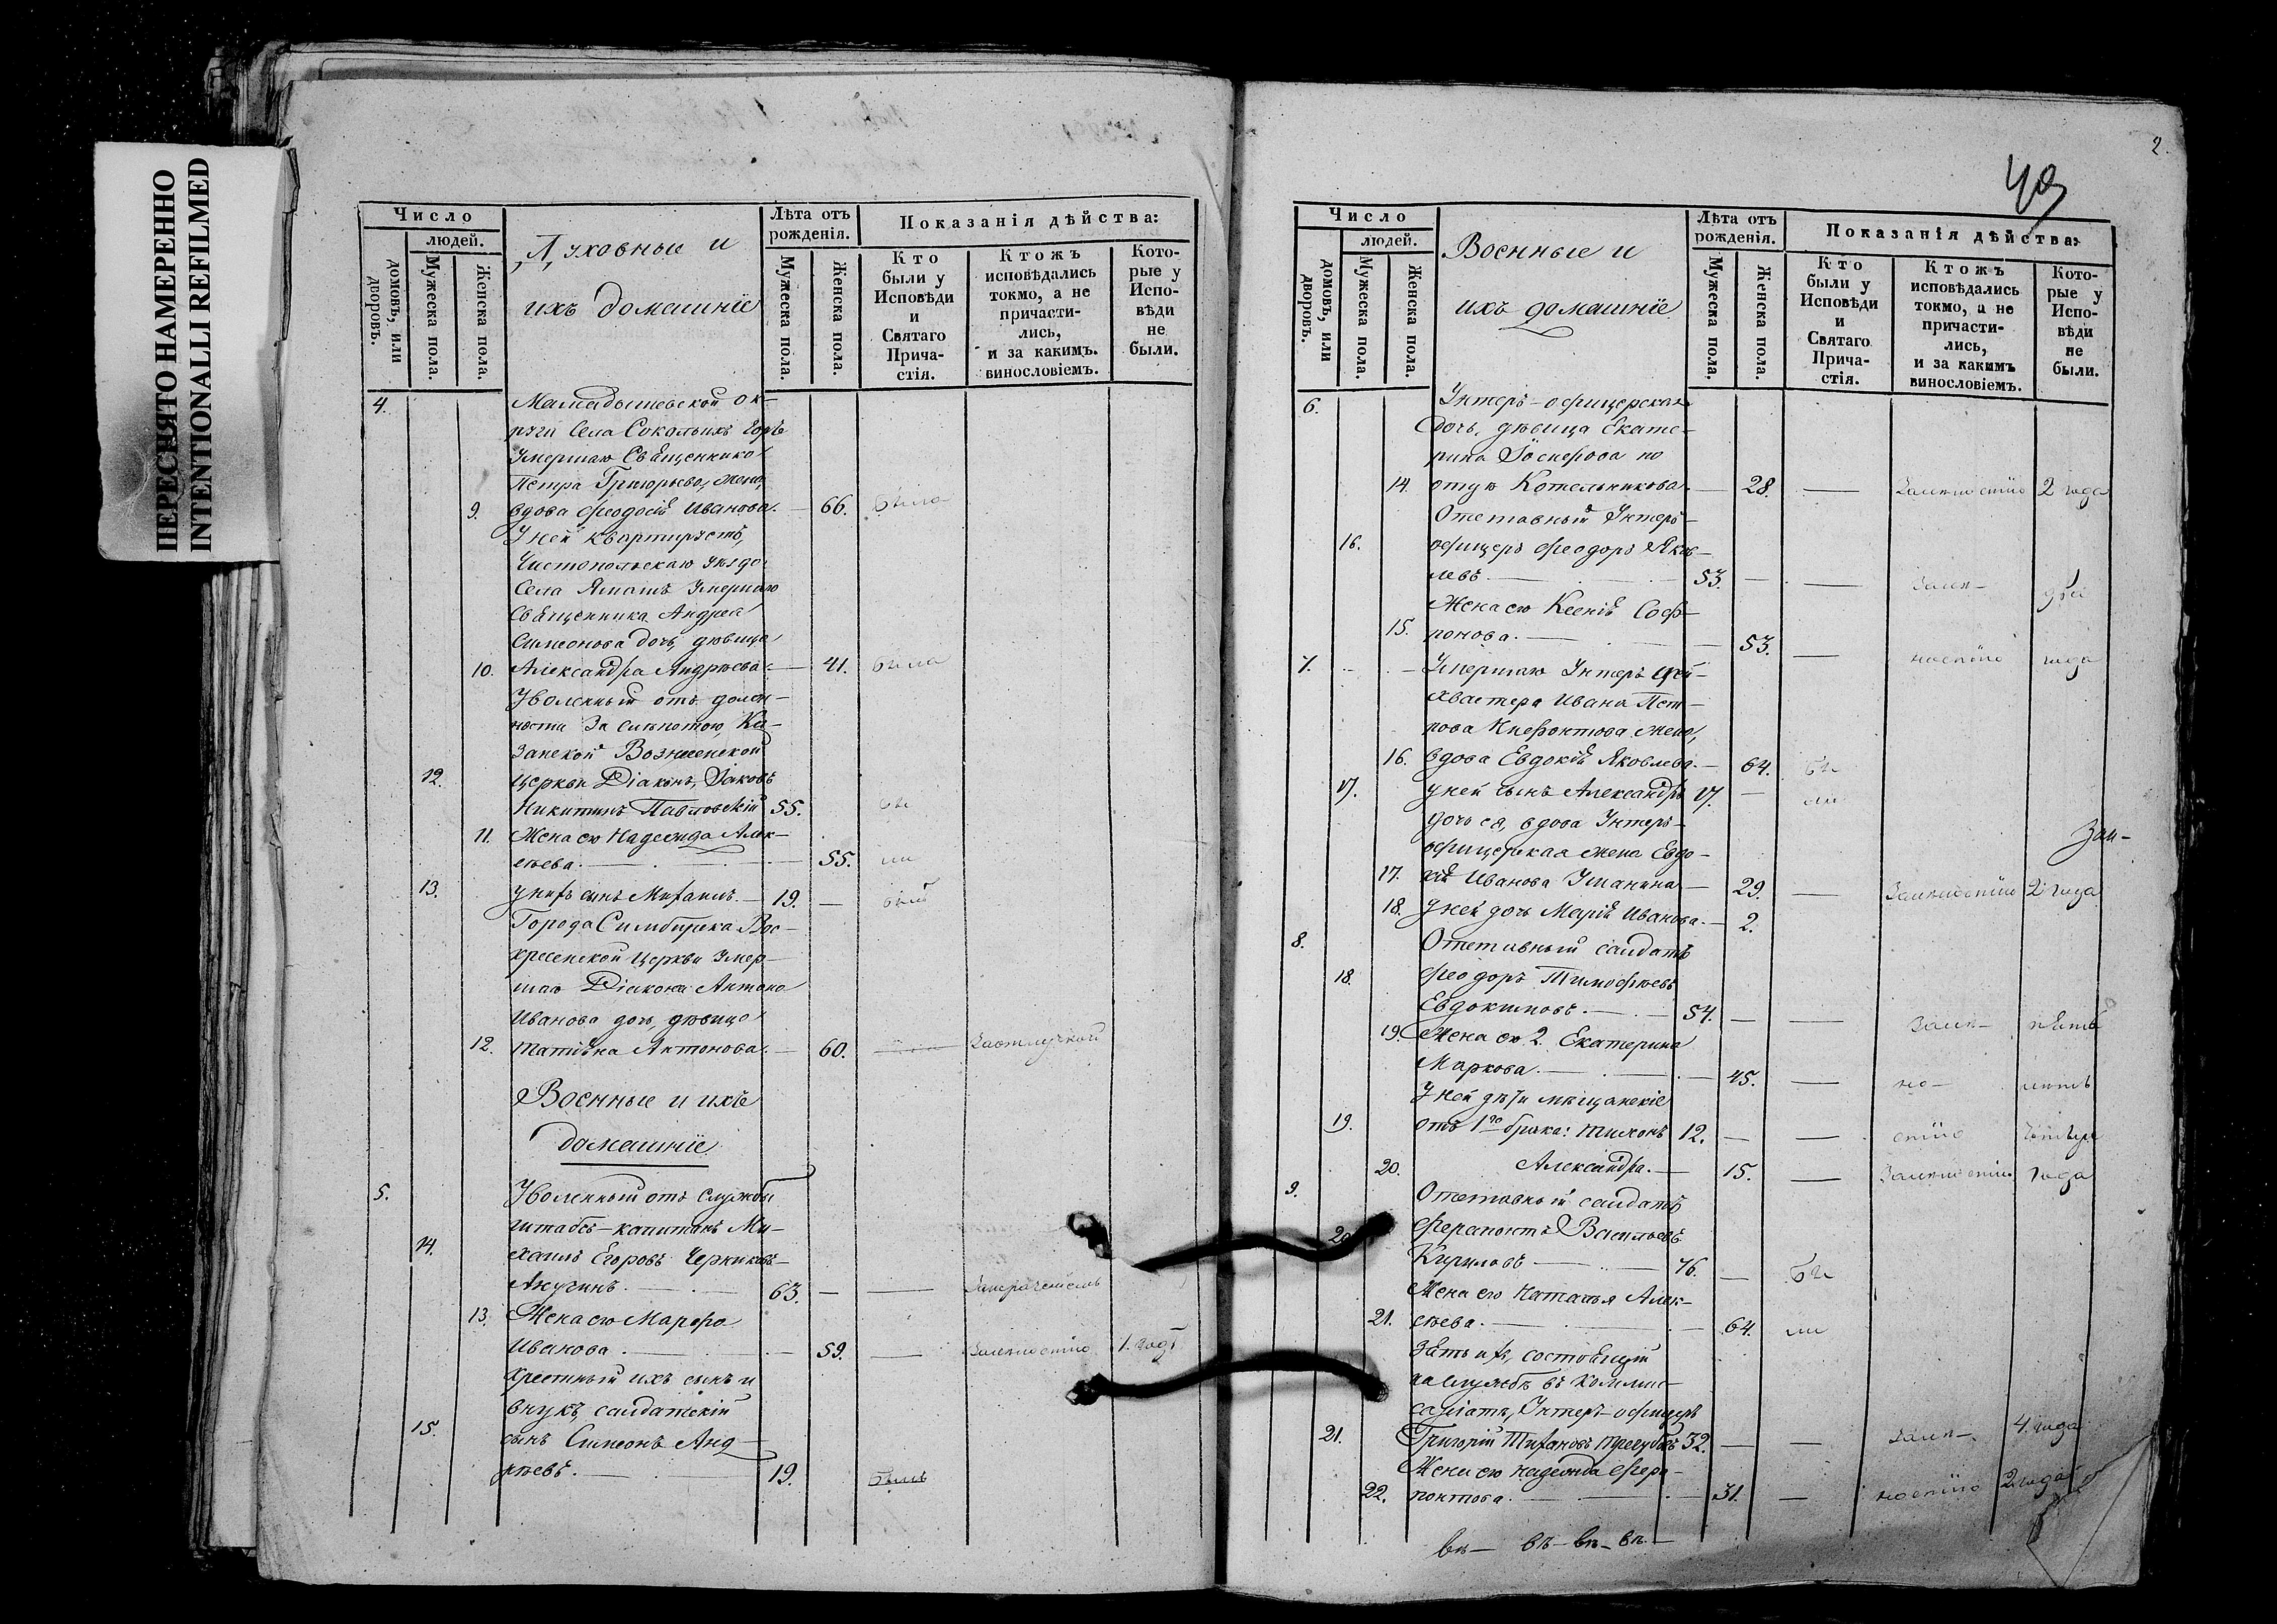 ПЕРЕСНЯТО НАМЕРЕННО
INTENTIONALLI REFILMED
Число
людей.
домовъ, или дворовъ.
Мужеска пола.
Женска пола.
Духовные и
ихъ домашніе
Лѣта отъ рожденія.
Мужеска пола.
Женска пола.
Показанія дѣйства:
Кто были у Исповѣди и Святаго Прича-стія.
Ктожъ исповѣдались токмо, а не причасти-лись, и за какимъ. винословіемъ.
Кото-рые у Испо-вѣди не были.
4. Мамадышевской ок-
руги Села Сокольихъ Горъ
Умершаго Священника
Петра Григорьева, жена,
9. вдова Феодосія Иванова. — 66. была
У ней квартируетъ,
Чистопольскаго уѣзда
Села умершаго
Священника Андрея
Симеонова дочь, дѣвица
10. Александра Андреева. — 41. была
Уволенный отъ долж-
ности за слѣпотою, Ка-
занской Вознесенской
12. церкви Діаконъ, Іаковъ
Никитинъ Павловскій 55. бы
11. Жена его Надежда Алек-
сѣева. — 55. ли
13. у нихъ сынъ Михаилъ. — 19. — былъ
Города Симбирска Вос-
кресенской Церкви умер-
шаго Діакона Антона
Иванова дочь, дѣвица
12. Татіана Антонова. — 60. —
Военные и ихъ
домашніе
5. Уволенный отъ службы
штабсъ-капитанъ Ми-
14. хаилъ Егоровъ
Анучинъ. — 63. — —
13. Жена его Марфа
Иванова. — 59. — Заленостію 1. годъ
крестный ихъ сынъ и
внукъ, солдатскій
15. сынъ Симеонъ Анд-
реевъ. — 19. былъ
2.
49
Число
людей.
домовъ, или дворовъ.
Мужеска пола.
Женска пола.
Военные и
ихъ домашніе
Лѣта отъ рожденія.
Мужеска пола.
Женска пола.
Показанія дѣйства:
Кто были у Исповѣди и Святаго Прича-стія.
Ктожъ исповѣдались токмо, а не причасти-лись, и за какимъ винословіемъ.
Кото-рые у Испо-вѣди не были.
6. Унтеръ-офицерская
дочь, дѣвица Екате-
рина Іосифова по
14. отцу Котельникова. — 28. — Заленостію 2 года
Отставный Унтеръ-
16. офицеръ Феодоръ Яков-
левъ. — 53. — — Залѣ- два
Жена его Ксенія Соф-
15. ронова. — 53. — ностію года
7. — — Умершаго Унтеръ цей-
хвахтера Ивана Пет-
рова жена,
16. вдова Евдокія Яковлева. — 64. бы
17. у ней сынъ Александръ 17. — ли
дочь ея, вдова Унтеръ-
офицерская жена Евдо-
17. кія Иванова Уманина — 29. — Заленостію 2 года
18. у ней дочь Марія Иванова. — 2.
8. Отставный солдатъ
18. Феодоръ Тимофѣевъ
Евдокимовъ. — 54. — — Залѣ- пять
19. Жена его 2. Екатерина
Маркова. — 45. — но- лѣтъ
У ней дѣти мѣщанскіе
19. отъ 1го брака: Тихонъ 12. — — стію четыре
20. Александра. — 15. — Заленостію года
9. Отставный солдатъ
20. Ферапонтъ Васильевъ
Кириловъ — 76. — бы
Жена его Наталья Алек-
21. сѣева. — 64. ли
Зять ихъ, состоящій
на службѣ въ Коммис-
саріатѣ, Унтеръ-офицеръ
21. Григорій Тихановъ 32. — — Залѣ- 4 года
Жена его Надежда Фера-
22. понтова. — 31. — ностію 2 года